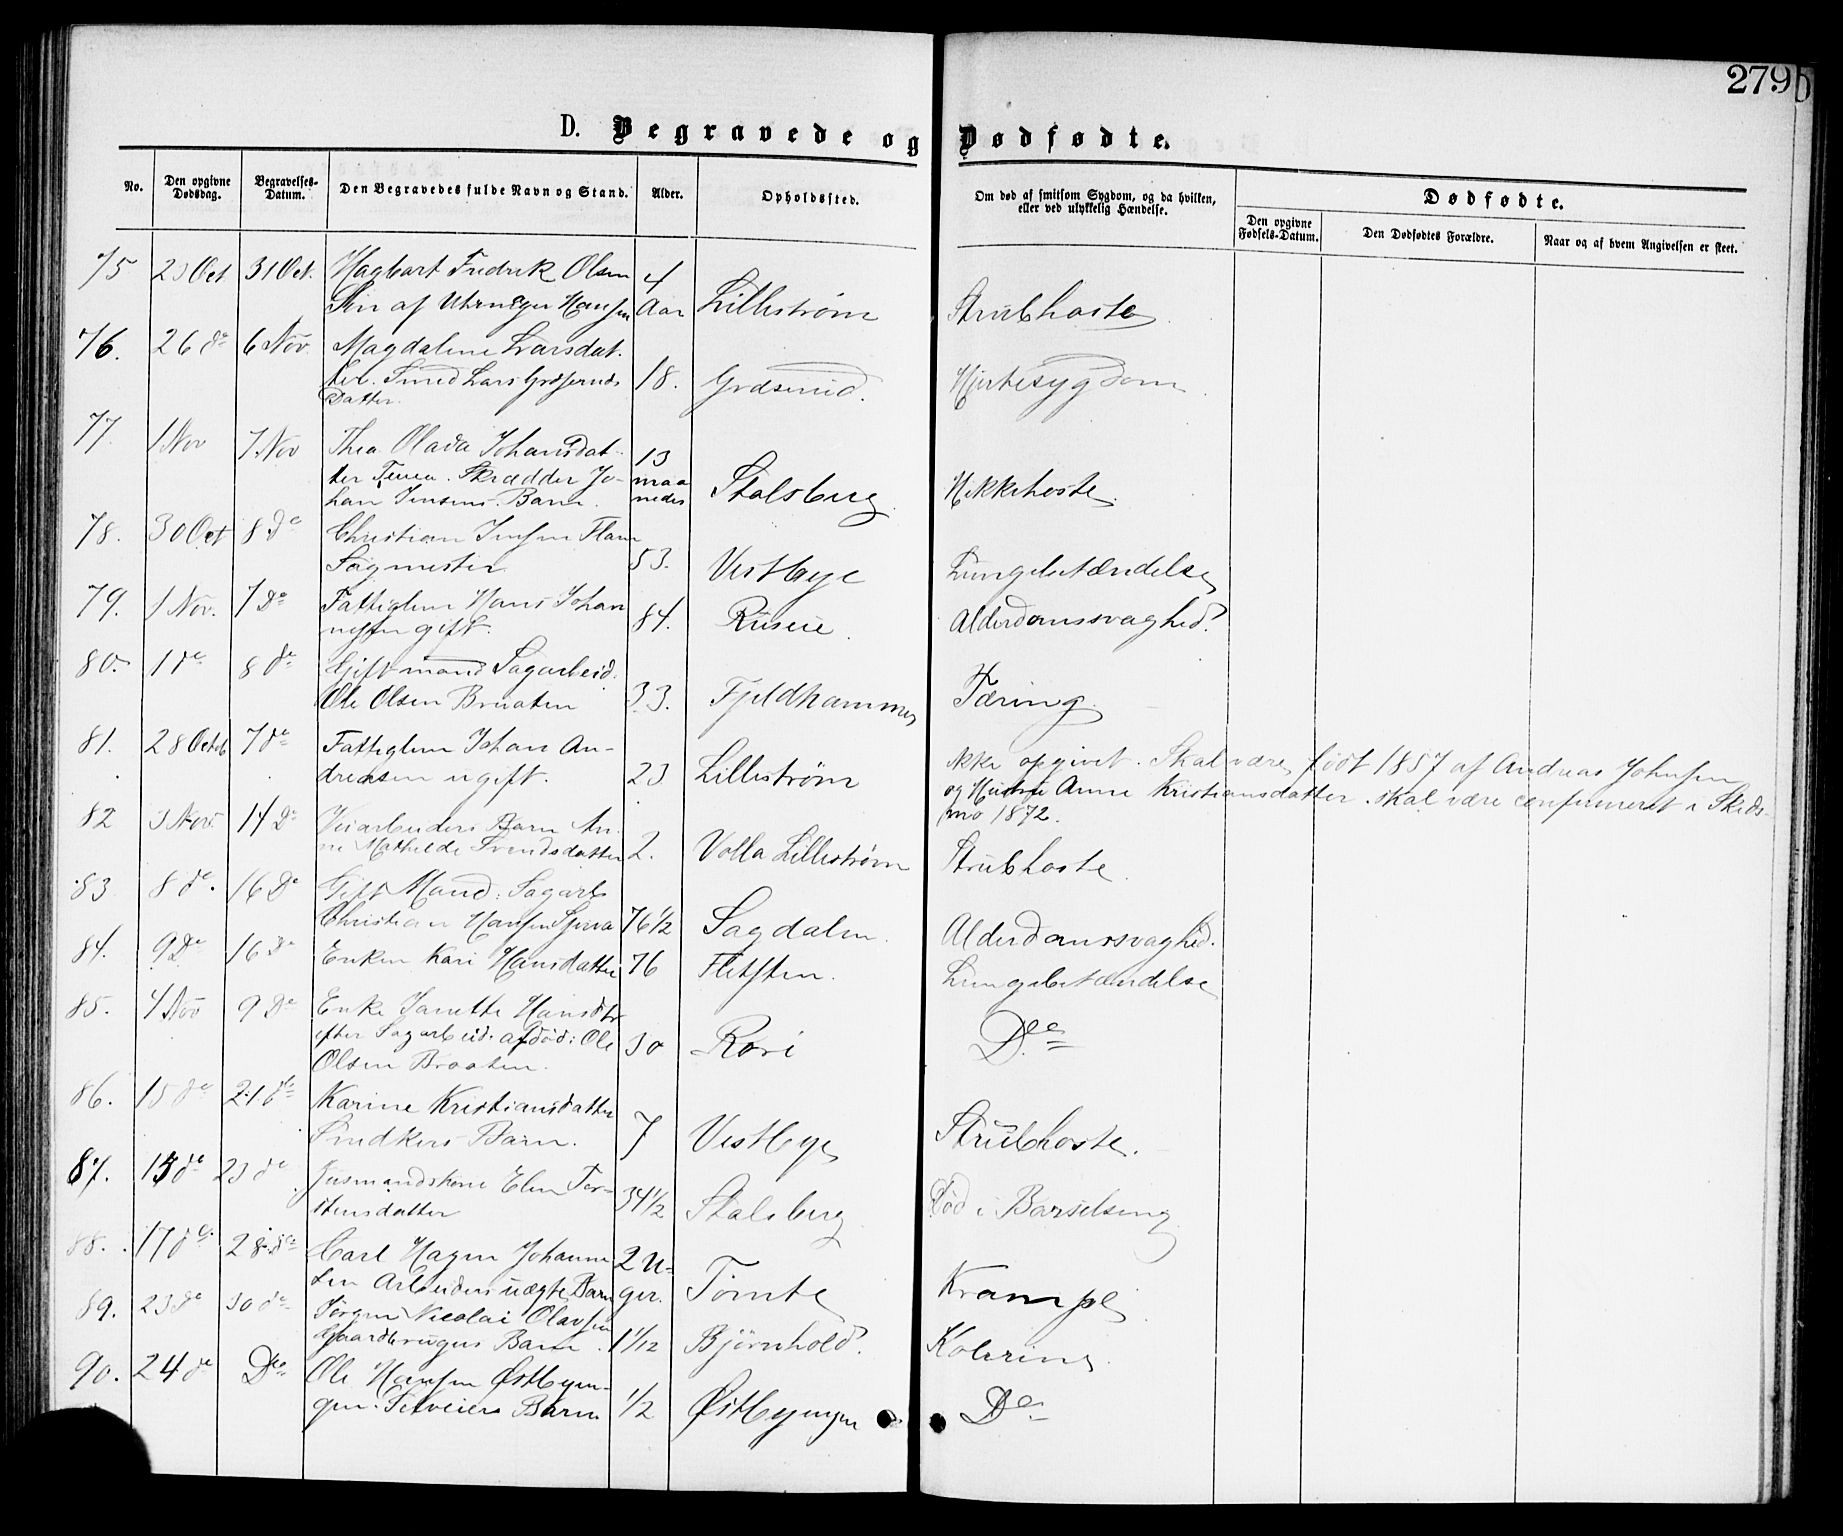 279b
D. Begravede og Dødfødte.
No. Den opgivne Dødsdag. Begravelses-Datum. Den Begravedes fulde Navn og Stand. Alder. Opholdssted. Om død af smitsom Sygdom, og da hvilken, eller ved ulykkelig Hændelse. Dødfødte.
Den opgivne Fødsels-Datum. Den Dødfødtes Forældre. Naar og af hvem Angivelsen er skeet.
75 Oct 31 Oct. Hagbart Fredrik Olsen 4
Søn af Hansen Aar Lillestrøm Strubhoste
76. 26 de 6 Nov Magdalene Larsdat-
ter. Lars Datter. 18. Græsrud. Hjertesygdom
77. 1 Nov 7 Nov Thea Olava Johansdat- 13
ter Skrædder Jo- maa
han Jensens Barn. neder Stalsberg Kikhoste
78. 30 Oct 8 De Christian Jensen
Sagmester 53. Vestbye Lungebetændelse
79. 1 Nov. 7 De Fattiglem Hans Johan
nesen gift. 84. Alderdomssvaghed.
80. 1 de 8 de Gift mand Sagarbeid.
Ole Olsen Braaten 33. Fjeldhammer Tæring
81. 28 Octob 7 de Fattiglem Johan An-
dreasen ugift. 23 Lillestrøm ikke opgivet. Skal være født 1857 af Andreas Johnsen
og Hustru Anne Kristiansdatter. skal være confirmeret i Skeds-
mo 1872.
82 3 Nov. 14 De Veiarbeiders Barn An-
ne Mathilde Svendsdatter 2. Volla Lillestrøm Strubhoste
83 8 de. 16 De Gift Mand. Sagarb
Christian Hansen 76 1/2 Sagdalen. Alderdomssvaghed.
84. 9 De 16 De Enken Kari Hansdatter 76 Lungebetændelse
85. 4 Nov 9 De Enke Janette Hansdtr
efter Sagarbeid. afdød: Ole 30 Rovi De
Olsen Braaten.
86. 15 de 21 de Karine Kristiansdatter
Snedkers Barn. 7 Vestbye Strubhoste.
87. 15 de 23 de Husmandskone Elen Tor-
stensdatter 34 1/2 Stalsberg Død i Barselseng
88. 17 de 28 de Carl Hagen Johanne- 2 U-
sen Arbeiders uægte Barn ger. Tomte Krampe
89. 23 de 30 de Jørgen Nicolai Olavsen
Gaardbrugers Barn 1 1/12 Bjørnhold. Kolerine
90. 24 de De Ole Hansen Østbyen-
gen. Selveiers Barn 1/2 Østbyengen De